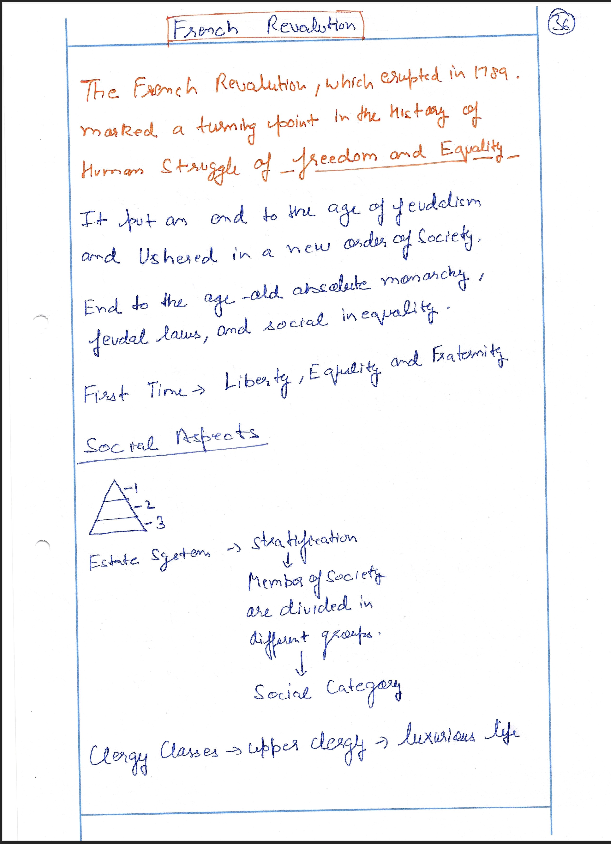 French Revalution
36
The French Revalution, which erupted in 1789.
marked a turning point in the History of
Human Struggle of freedom and Equality
It put an end to the age of feudalism
and Ushered in a new order of Society.
End to the age-old absolute monarchy,
feudal laws, and social inequality.
First Time → Liberty, Equality and Fraternity
Social Aspects
-1
-2
-3
Estate System → stratification
↓
Member of Society
are divided in
different groups.
↓
Social Category
Clergy Classes → upper clergy → luxurious life